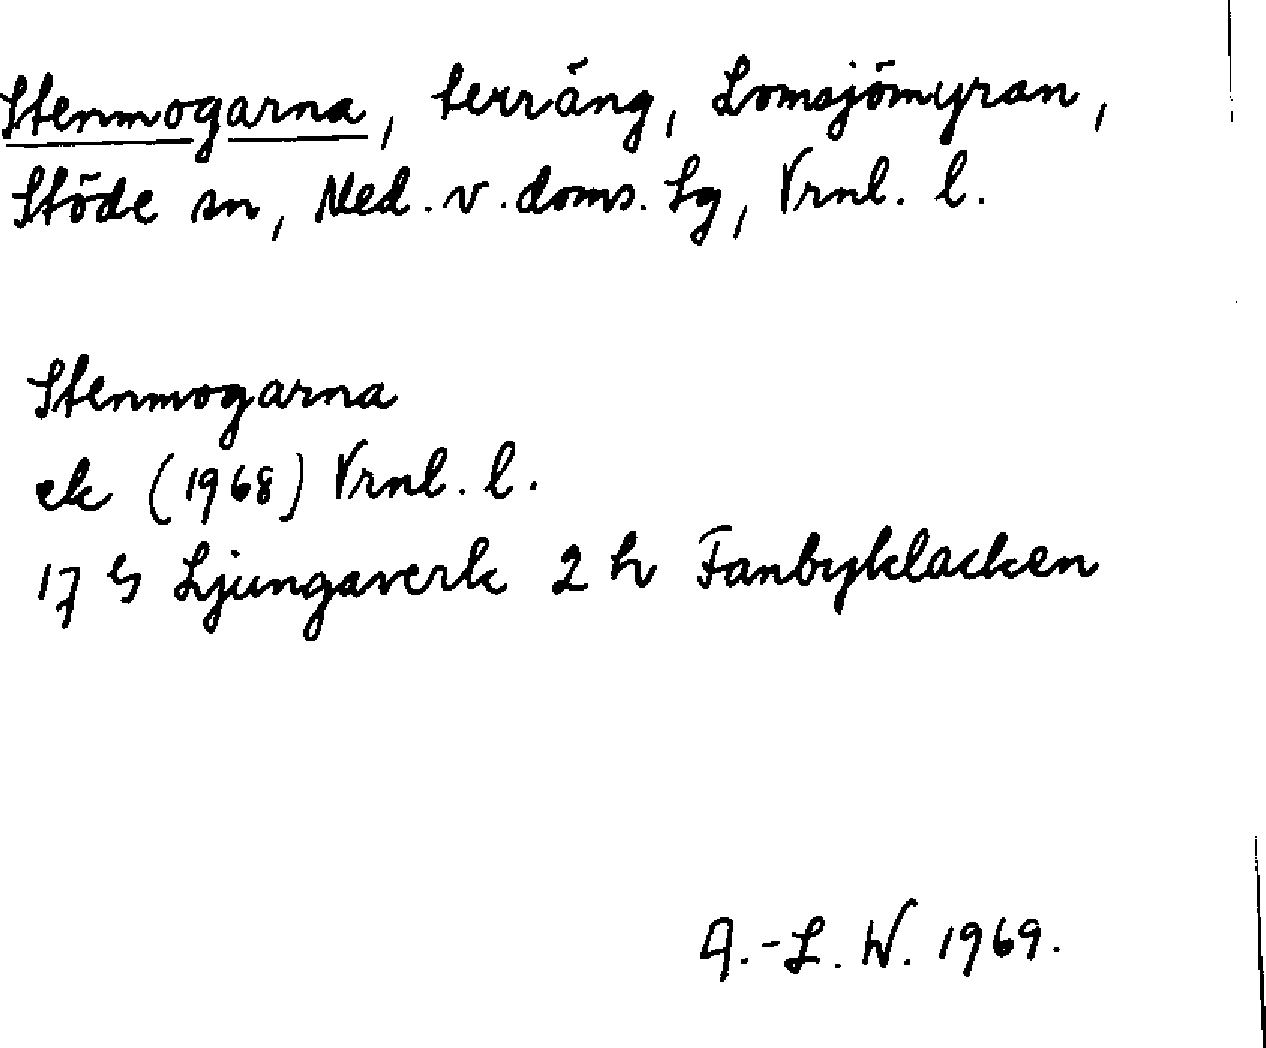 Stenmogarna, terräng, Lomsjömyran,
Stöde sn, Ned. v. doms. Lg, Vrnl. l.
Stenmogarna
ek (1968) Vrnl. l.
17 G Ljungaverk 2 h Fanbyklacken
A.-L. W. 1969.